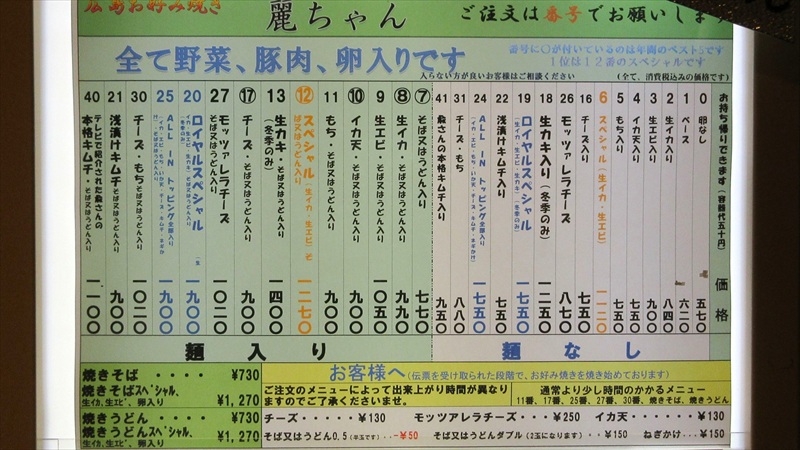 広島お好み焼き
麗ちゃん
ご注文は番号でお願いします
全て野菜、豚肉、卵入りです
入らない方が良いお客様はご相談ください
番号に〇が付いているのは年間のベスト5です
1位は12番のスペシャルです
(全て、消費税込みの価格です)
お持ち帰りできます(容器代五十円) 価格
0 卵なし 五七〇
1 ベース 六二〇
2 生イカ入り 八四〇
3 生エビ入り 九〇〇
4 イカ天入り 七五〇
5 もち入り 七五〇
6 スペシャル(生イカ・生エビ) 一一二〇
16 チーズ入り 七五〇
26 モッツァレラチーズ 八七〇
18 生カキ入り(冬季のみ) 一二五〇
19 ロイヤルスペシャル 一七五〇
22 浅漬けキムチ入り 七五〇
24 ALL IN トッピング全部入り 一七五〇
31 チーズ・もち 八八〇
41 麁さんの本格キムチ入り 九五〇
⑦ そば又はうどん入り 七七〇
⑧ 生イカ・そば又はうどん入り 九九〇
9 生エビ・そば又はうどん入り 一〇五〇
⑩ イカ天・そば又はうどん入り 九〇〇
11 もち・そば又はうどん入り 九〇〇
⑫ スペシャル(生イカ・生エビ)そば又はうどん入り 一二七〇
13 生カキ・そば又はうどん入り(冬季のみ) 一四〇〇
⑰ チーズ・そば又はうどん入り 九〇〇
27 モッツァレラチーズ そば又はうどん入り 一〇二〇
20 ロイヤルスペシャル 一九〇〇
25 ALL IN トッピング全部入り 一九〇〇
30 チーズ・もちそば又はうどん入り 一〇二〇
21 浅漬けキムチそば又はうどん入り 九〇〇
40 テレビで紹介された麁さんの本格キムチそば又はうどん入り 一一〇〇
麺入り
麺なし
焼きそば ・・・・ ¥730
焼きそばスペシャル、
生イカ、生エビ、卵入り ¥1,270
焼きうどん ・・・・ ¥730
焼きうどんスペシャル、
生イカ、生エビ、卵入り ¥1,270
お客様へ(伝票を受け取られた段階で、お好み焼きを焼き始めております)
ご注文のメニューによって出来上がり時間が異なり
ますのでご了承くださいませ。
通常より少し時間のかかるメニュー
11番、17番、25番、27番、30番、焼きそば、焼きうどん
チーズ・・・・・・¥130 モッツァレラチーズ・・・¥250 イカ天・・・・・・¥130
そば又はうどん0,5(半玉です)・・-¥50 そば又はうどんダブル(2玉になります)・・¥150 ねぎかけ・・・¥150